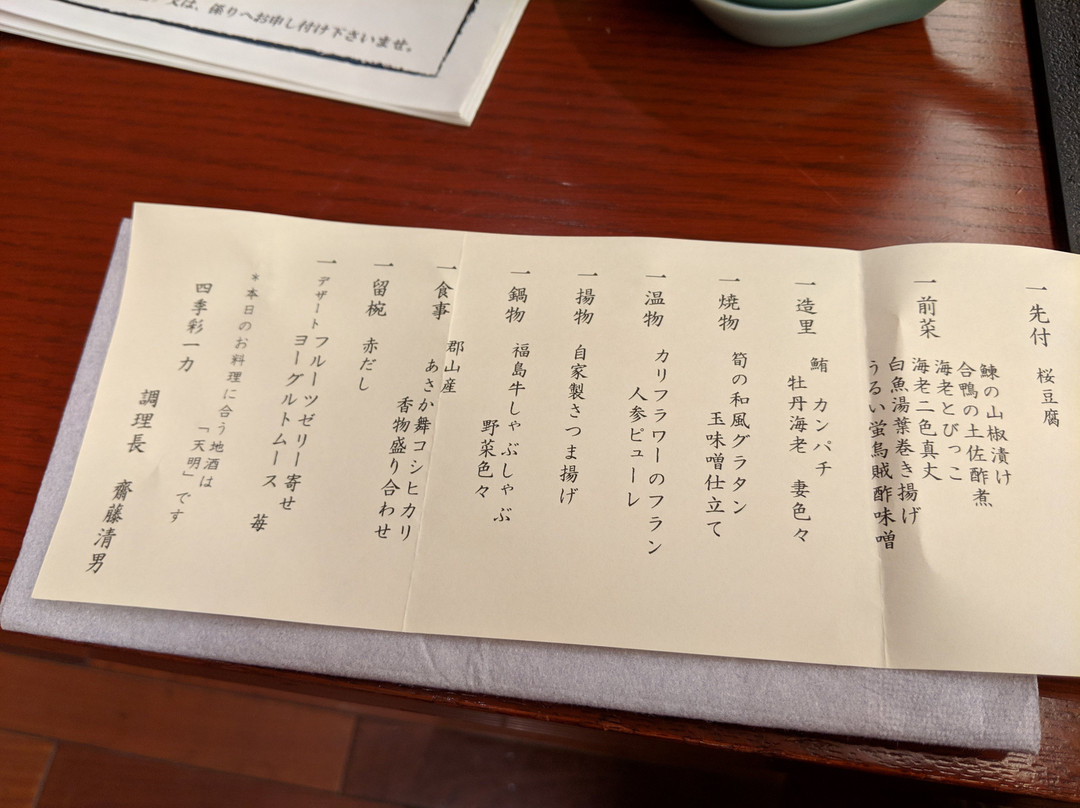 係りへお申し付け下さいませ。
一 先付
桜豆腐
一 前菜
鰊の山椒漬け
合鴨の土佐酢煮
海老とびっこ
海老二色真丈
白魚湯葉巻き揚げ
うるい蛍烏賊酢味噌
一 造里
鮪 カンパチ
牡丹海老 妻色々
一 焼物
筍の和風グラタン
玉味噌仕立て
一 温物
カリフラワーのフラン
人参ピューレ
一 揚物
自家製さつま揚げ
一 鍋物
福島牛しゃぶしゃぶ
野菜色々
一 食事
郡山産
あさか舞コシヒカリ
香物盛り合わせ
一 留椀
赤だし
一 デザート
フルーツゼリー寄せ
ヨーグルトムース 苺
*本日のお料理に合う地酒は
「天明」です
四季彩一力
調理長 齋藤清男